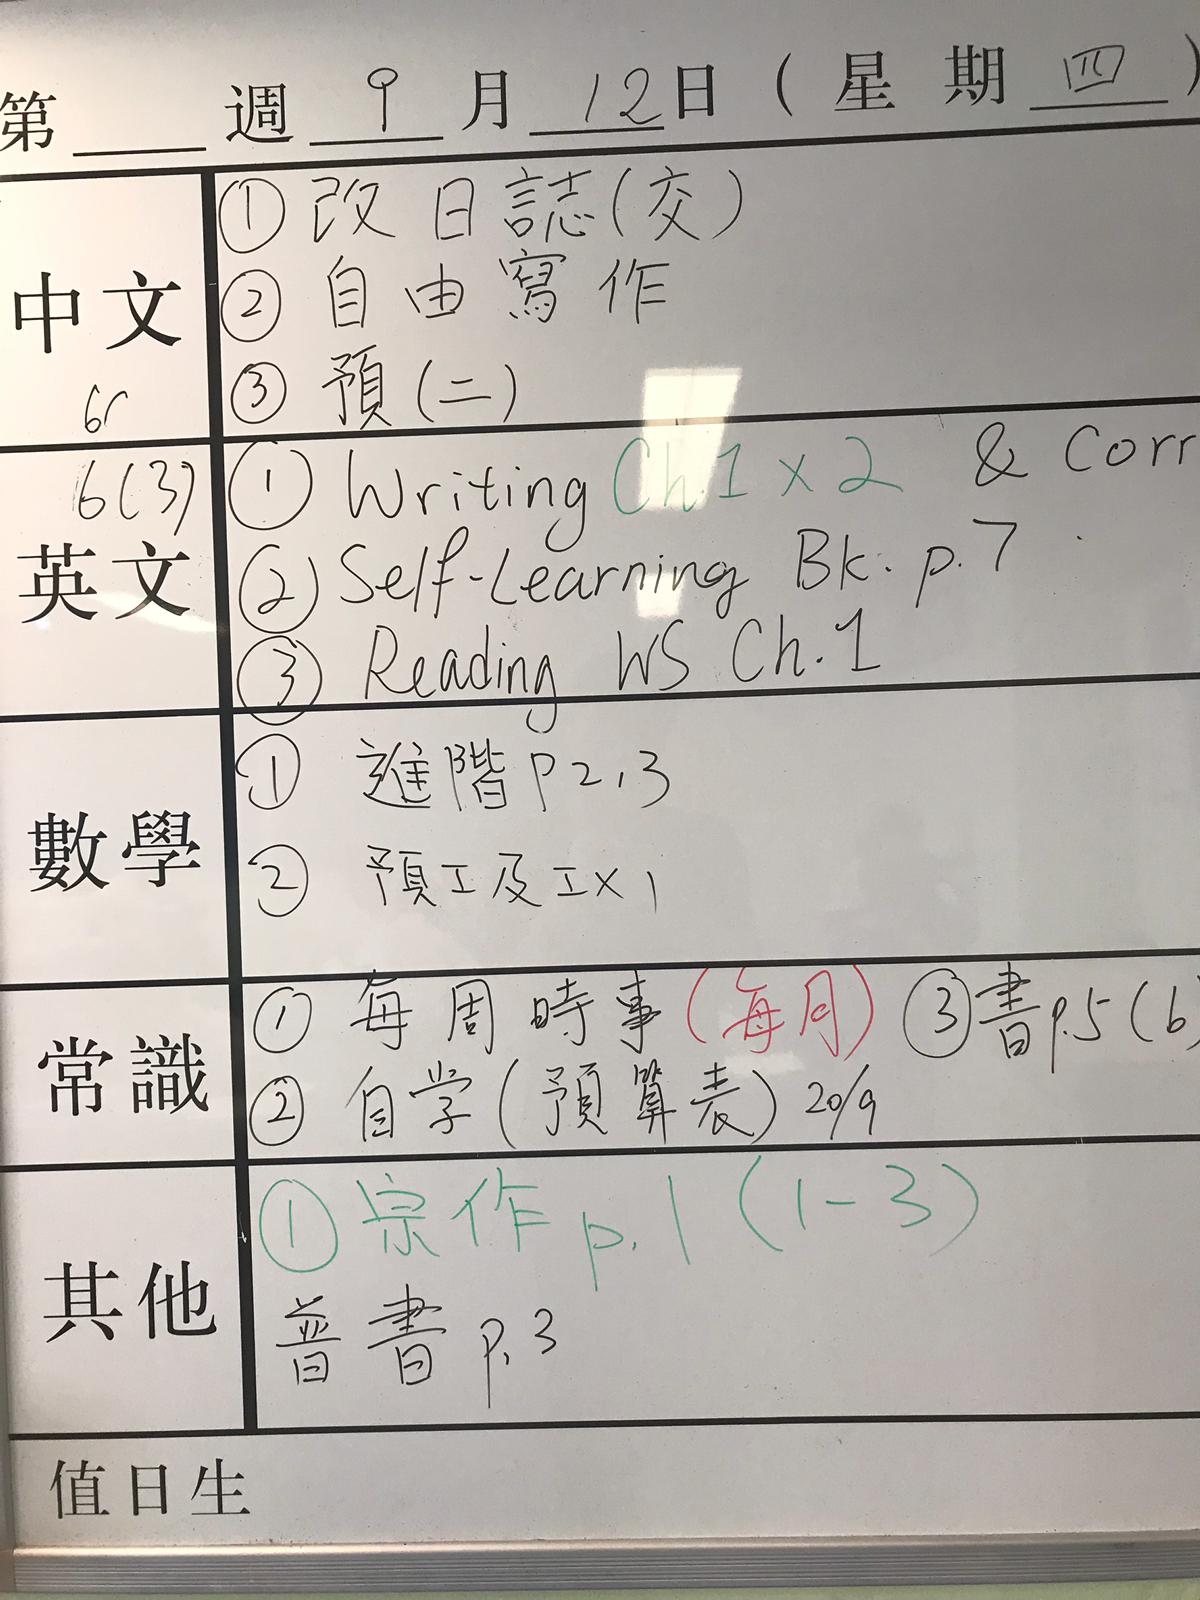 第 週 9 月 12 日 ( 星期 四 )
中文
① 改日誌(交)
② 自由寫作
③ 預(二)
6(3)
英文
① Writing Ch.1 x 2 & Corr
② Self-Learning Bk. p.7
③ Reading WS Ch.1
數學
① 進階 P2,3
② 預工及工x1
常識
① 每周時事(每月) ③書p.5(6)
② 自学(預算表) 20/9
其他
① 宗作 p.1 (1-3)
普書 p.3
值日生